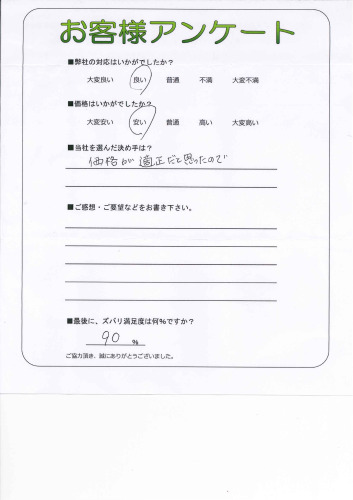 お客様アンケート
■弊社の対応はいかがでしたか？
大変良い 良い 普通 不満 大変不満
■価格はいかがでしたか？
大変安い 安い 普通 高い 大変高い
■当社を選んだ決め手は？
価格が適正だと思ったので
■ご感想・ご要望などをお書き下さい。
■最後に、ズバリ満足度は何%ですか？
90 %
ご協力頂き、誠にありがとうございました。